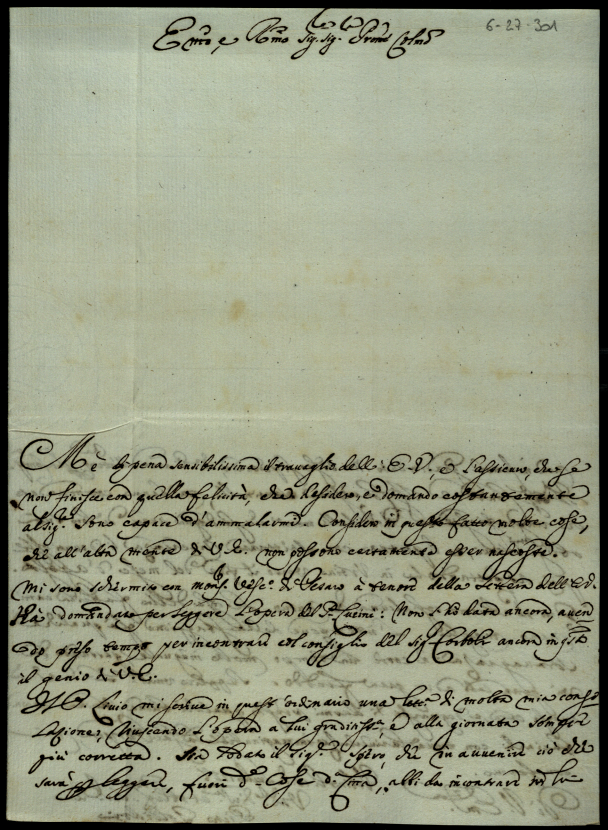 6-27-301
Emo, e Rmo Sig. Sig.
M'è di pena sensibilissima il travaglio dell' E.V., e l'assicuro, che se
non finisce con quella felicità, che desidero, e domando costantemente
al Sig. sono capace d'ammalarmi. Considero in questo fatto molte cose,
che all'alta mente di V.E. non possono certamente esser nascoste.
Mi sono schermito con mons. Vesc. di Pesaro à tenore della lettera dell'
Hà domandato per leggere l'opera del P. Lucini: Non l'hò data ancora, aven
do preso tempo per incontrare col consiglio del Sig.
il genio di V.E.
Il P. Livio mi scrive in quest'ordinario una lett. di molta mia conso
lazione, riuscendo l'opera a lui gradiss., e alla giornata sempre
più corretta. Sia lodato il Sig. Spero, che in avvenire ciò che
sarà leggere, fuori d. Cose d. Cina, abbi da incontrare